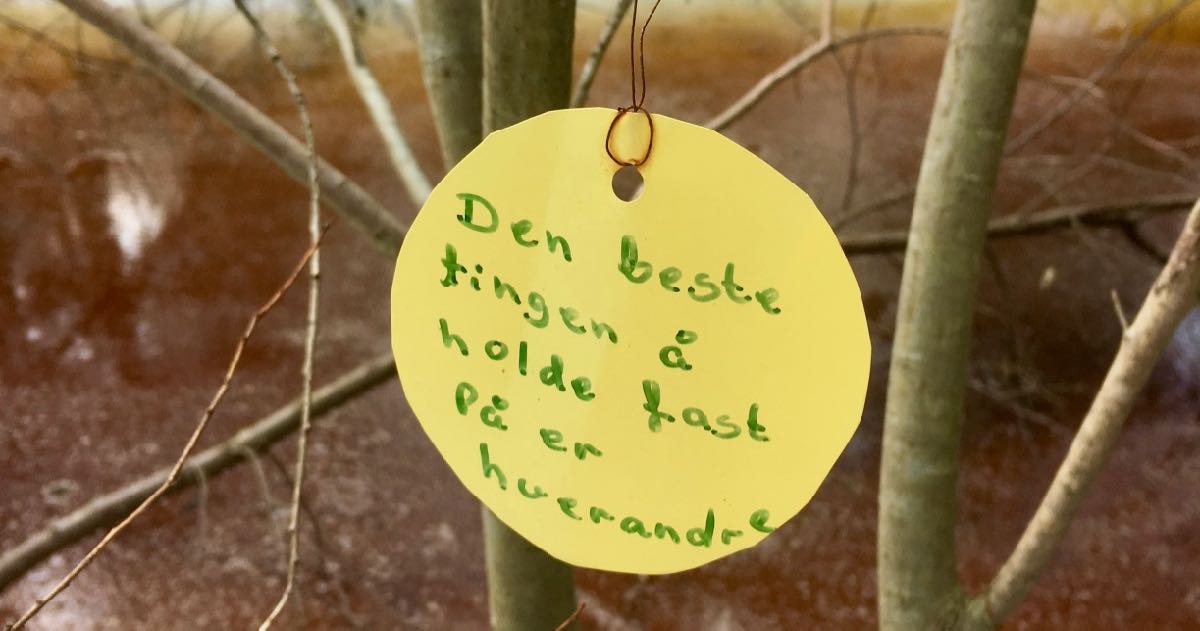 Den beste
tingen å
holde fast
på er
hverandre